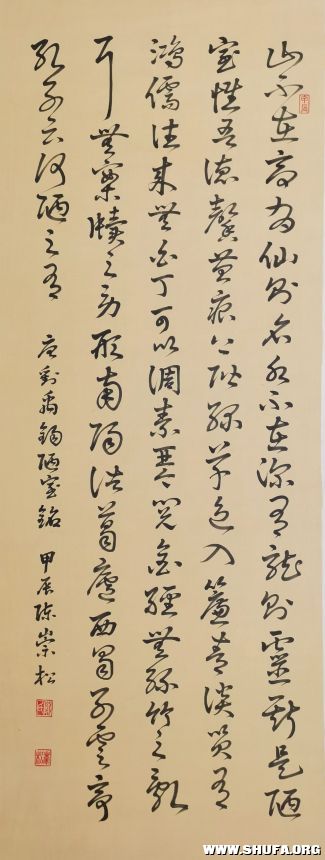 山不在高有仙則名水不在深有龍則靈斯是陋
室惟吾德馨苔痕上階綠草色入簾青談笑有
鴻儒往來無白丁可以調素琴閱金經無絲竹之亂
耳無案牘之勞形南陽諸葛廬西蜀子雲亭
孔子云何陋之有 唐劉禹錫陋室銘 甲辰陳崇松
WWW.SHUFA.ORG